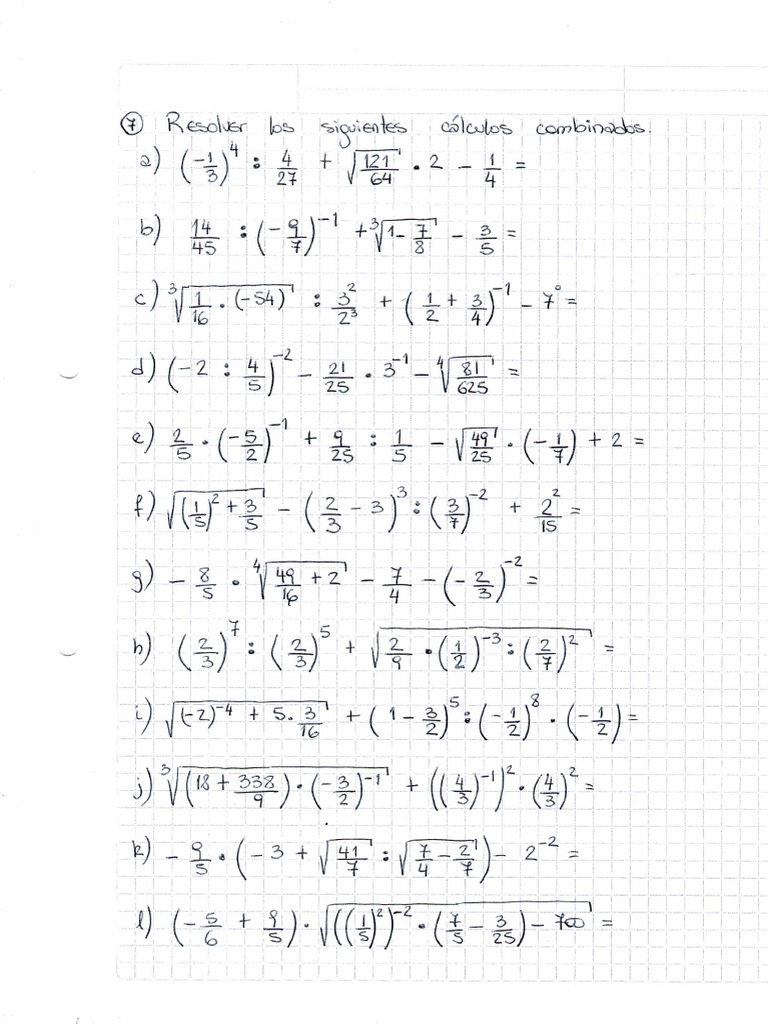 ⑦ Resolver los siguientes cálculos combinados.
a) (-1/3)^4 : 4/27 + √(121/64) · 2 - 1/4 =
b) 14/45 : (-9/7)^-1 + ∛(1 - 7/8) - 3/5 =
c) ∛(1/16 · (-54)) : 3²/2³ + (1/2 + 3/4)^-1 - 7° =
d) (-2 : 4/5)^-2 - 21/25 · 3^-1 - ∜(81/625) =
e) 2/5 · (-5/2)^-1 + 9/25 : 1/5 - √(49/25) · (-1/7) + 2 =
f) √((1/5)² + 3/5) - (2/3 - 3)³ : (3/7)^-2 + 2²/15 =
g) - 8/5 · ∜(49/16 + 2) - 7/4 - (-2/3)^-2 =
h) (2/3)^7 : (2/3)^5 + √(2/9 · (1/2)^-3 : (2/7)²) =
i) √((-2)^-4 + 5 · 3/16) + (1 - 3/2)^5 : (-1/2)^8 · (-1/2) =
j) ∛((18 + 338/9) · (-3/2)^-1) + ((4/3)^-1)² · (4/3)² =
k) - 9/5 · (-3 + √(41/7) : √(7/4 - 2/7)) - 2^-2 =
l) (-5/6 + 9/5) · √(((1/5)²)^-2 · (7/5 - 3/25) - 700) =